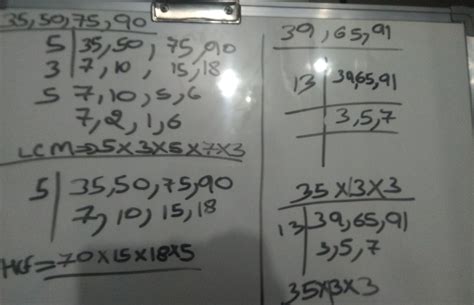 35,50,75,90
5 | 35,50, 75,90
3 | 7,10, 15,18
5 7,10,5,6
7,2,1,6
LCM=>5×3×5×7×3
5 | 35,50,75,90
7,10,15,18
HCF=70×15×18×5
39,65,91
13 | 39,65,91
3,5,7
35×13×3
13 | 39,65,91
3,5,7
35×13×3